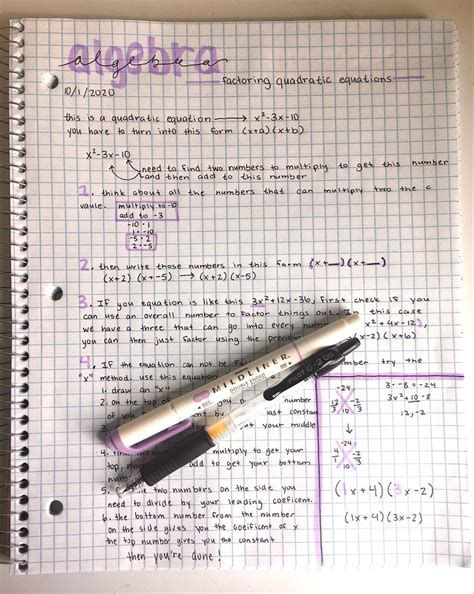 algebra
factoring quadratic equations
10/1/2020
this is a quadratic equation → x²-3x-10
you have to turn into this form (x+a)(x+b)
x²-3x-10
need to find two numbers to multiply to get this number
and then add to this number
1. think about all the numbers that can multiply two the c
vaule.
multiply to -10
add to -3
-10 · 1
1 · -10
-5 · 2
2 · -5
2. then write those numbers in this form (x+__)(x+__)
(x+2) (x+-5) → (x+2) (x-5)
3. If you equation is like this 3x²+12x-36, first check if you
can use an overall number to factor things out. In this case
we have a three that can go into every x²+4x-12),
you can then just factor using the x-2)(x+6)
4. If the equation can not be number try the
"x" method. use this equation
1. draw an "x"
2. on the top number
of you last constant
your middle
multiply to get your
top, add to get your bottom
5. two numbers on the side you
need to divide by your leading coeficent.
6. the bottom number from the number
on the side gives you the coeificent of x
the top number gives you the constant
then you're done!
MILDLINER
DOUBLE ENDED
PILOT G-2 05
-24
12 -2
3 3
10
-24
4 -2
1 3
10
3·-8=-24
3x²+10-8
12,-2
(1x+4)(3x-2)
(1x+4)(3x-2)